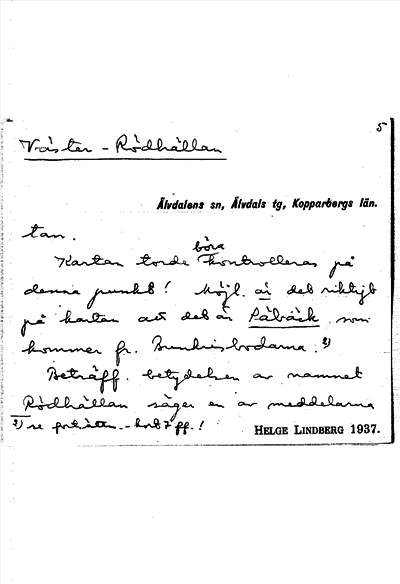 5
Väster - Rödhällan
Älvdalens sn, Älvdals tg, Kopparbergs län.
tan.
böra
Kartan torde kontrolleras på
denna punkt! Möjl. är det riktigt
på kartan att det är Påbäck som
kommer fr. Bunkrisbodarna. 2)
Beträff. betydelsen av namnet
Rödhällan säger en av meddelarna
2) se ff.!
HELGE LINDBERG 1937.